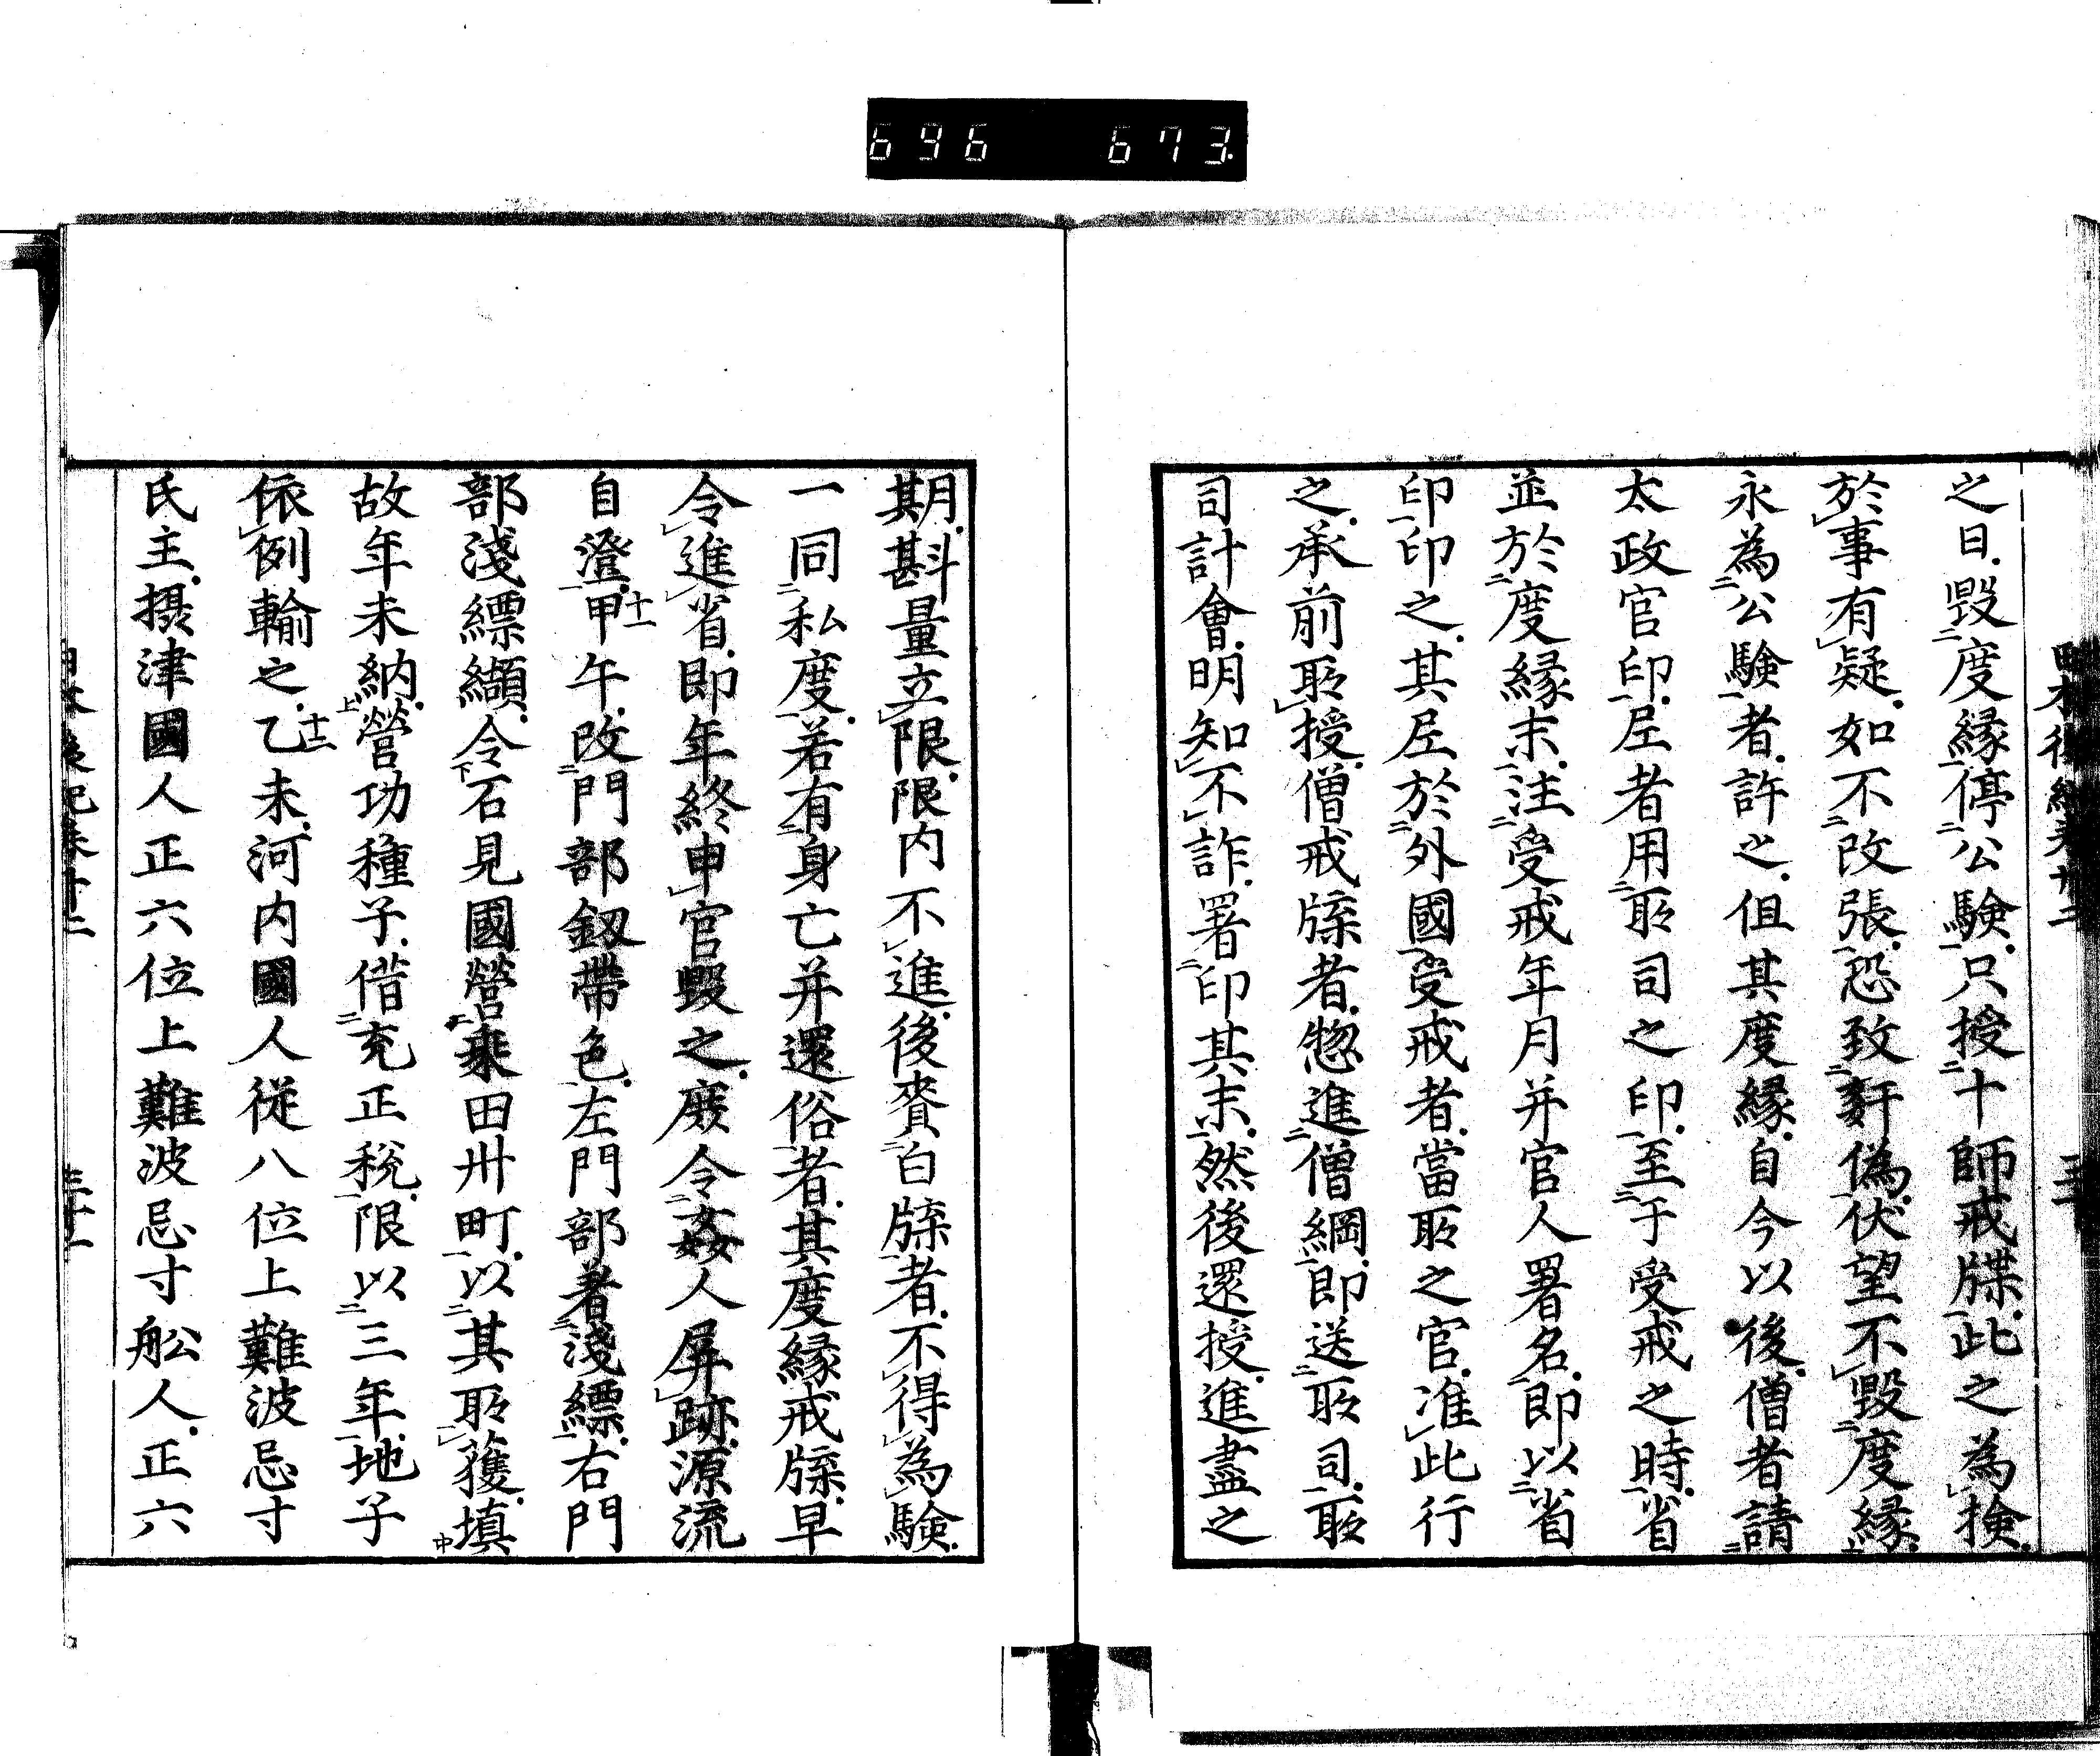 696 673.
之日毀度縁停公驗只授十師戒牒此之為撿
於事有疑如不改張恐致姧偽伏望不毀度縁
永為公驗者許之但其度縁自今以後僧者請
太政官印尼者用所司之印至于受戒之時省
並於度縁末注受戒年月并官人署名即以省
印印之其尼於外國受戒者當所之官准此行
之承前所授僧戒牒者惣進僧綱即送所司所
司計會明知不詐署印其末然後還授進盡之
期斟量立限限内不進後賷白牒者不得為驗
一同私度若有身亡并還俗者其度縁戒牒早
令進省即年終申官毀之庶令姦人屏跡源流
自澄十一甲午改門部釼帶色左門部著淺縹右門
部淺縹纈令石見國營乘田卅町以其所獲填
故年未納營功種子借充正税限以三年地子
依例輸之十二乙未河内國人従八位上難波忌寸
氏主摂津國人正六位上難波忌寸舩人正六